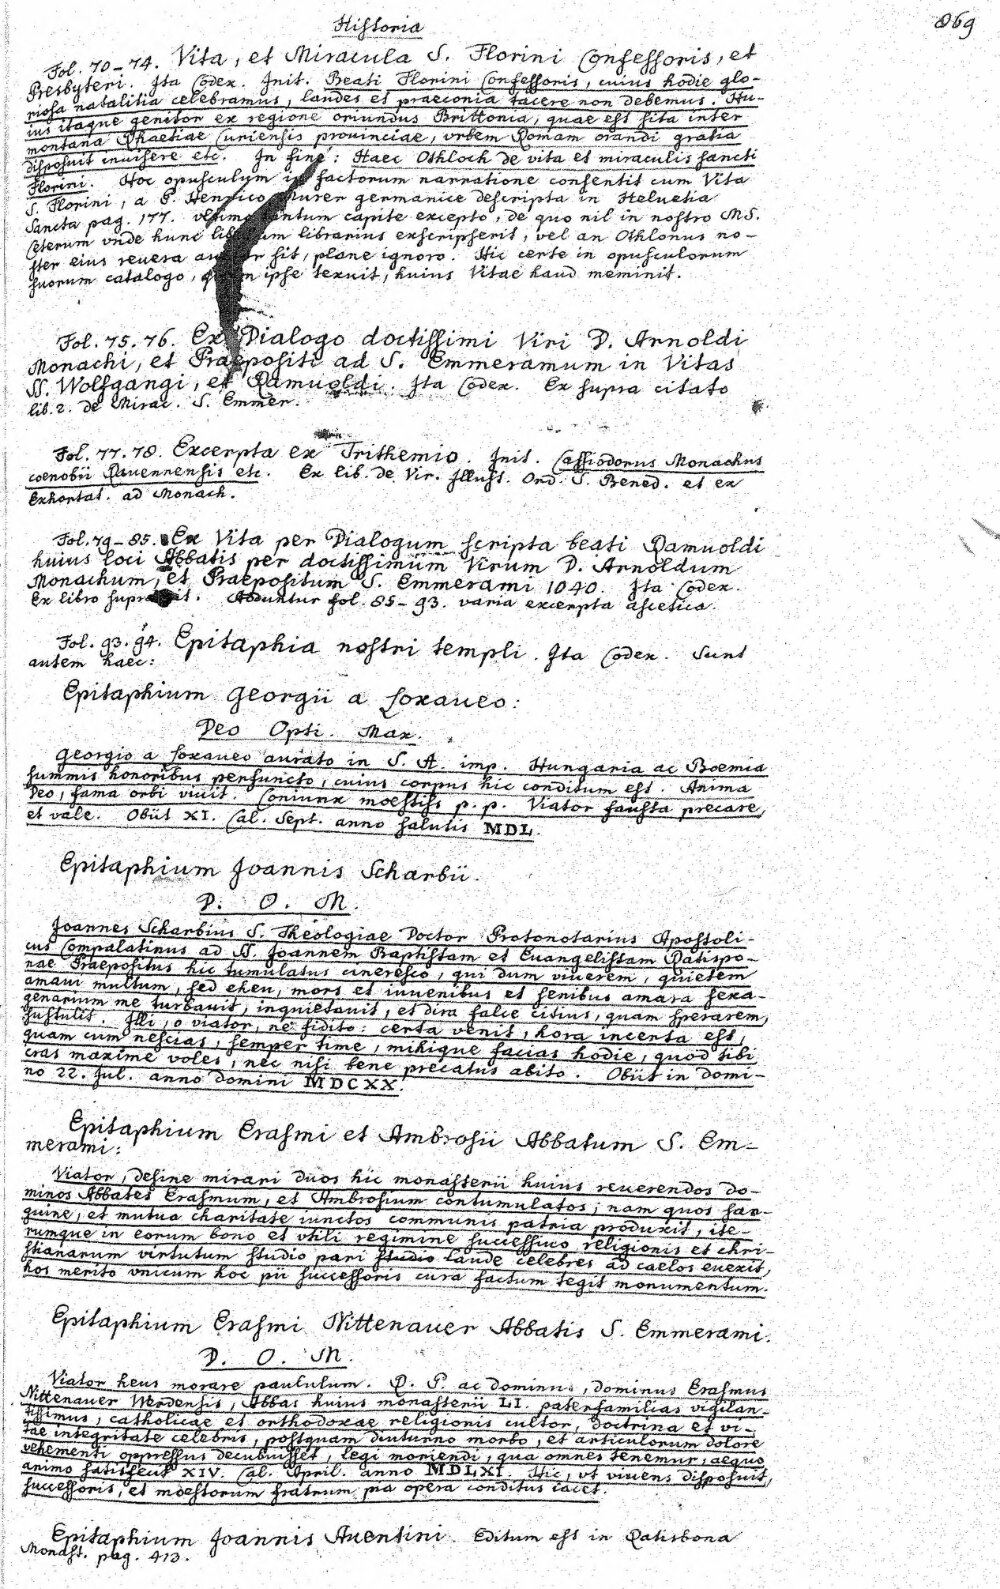 Historia
869
Fol. 70-74. Vita, et Miracula S. Florini Confessoris, et
Presbyteri. Ita Codex. Init. Beati Florini Confessoris, cuius hodie glo-
riosa natalitia celebramus, laudes et praeconia tacere non debemus. Hu-
ius itaque genitor ex regione oriundus Brittonia, quae est sita inter
montana Rhaetiae Curiensis provinciae, vrbem Romam orandi gratia
disposuit inuisere etc. In fine: Haec Othloch de vita et miraculis sancti
Florini. Hoc opusculum in factorum narratione consentit cum Vita
S. Florini, a P. Henrico Murer germanice descripta in Heluetia
Sancta pag. 177. vltimo capite excepto, de quo nil in nostro MS.
Ceterum vnde hunc librarius exscripserit, vel an Othlonus no-
ster eius reuera sit, plane ignoro. Hic certe in opusculorum
suorum catalogo, ipse texuit, huius Vitae haud meminit.
Fol. 75. 76. Ex Dialogo doctissimi Viri D. Arnoldi
Monachi, et Praepositi ad S. Emmeramum in Vitas
SS. Wolfgangi, et Ramuoldi. Ita Codex. Ex supra citato
lib. 2. de Mirac. S. Emmer.
Fol. 77. 78. Excerpta ex Trithemio. Init. Cassiodorus Monachus
coenobii Rauennensis etc. Ex lib. de Vir. Illust. Ord. S. Bened. et ex
Exhortat. ad Monach.
Fol. 79-85. Ex Vita per Dialogum scripta beati Ramuoldi
huius loci Abbatis per doctissimum Virum D. Arnoldum
Monachum, et Praepositum S. Emmerami 1040. Ita Codex.
Ex libro supra cit. Adduntur fol. 85-93. varia excerpta ascetica.
Fol. 93. 94. Epitaphia nostri templi. Ita Codex. Sunt
autem haec:
Epitaphium Georgii a Loxaueo:
Deo Opti. Max.
Georgio a Loxaueo aurato in S. A. imp. Hungaria ac Boemia
summis honoribus perfuncto, cuius corpus hic conditum est. Anima
Deo, fama orbi viuit. Coniunx moestiss p. p. Viator fausta precare,
et vale. Obiit XI. Cal. Sept. anno salutis MDL.
Epitaphium Joannis Scharbii.
D. O. M.
Joannes Scharbius S. Theologiae Doctor Protonotarius Apostoli-
cus Compalatinus ad SS. Joannem Baptistam et Euangelistam Ratispo-
nae Praepositus hic tumulatus cineresco, qui dum viuerem, quietem
amaui multum, sed eheu, mors et iuuenibus et senibus amara sexa-
genarium me turbauit, inquietauit, et dira falce citius, quam sperarem,
sustulit. Illi, o viator, ne fidito: certa venit, hora incerta est,
quam cum nescias, semper time, mihique facias hodie, quod tibi
cras maxime voles, nec nisi bene precatus abito. Obiit in domi-
no 22. Jul. anno domini MDCXX.
Epitaphium Erasmi et Ambrosii Abbatum S. Em-
merami:
Viator, desine mirari duos hic monasterii huius reuerendos do-
minos Abbates Erasmum, et Ambrosium contumulatos; nam quos san-
guine, et mutua charitate iunctos communis patria produxit, ite-
rumque in eorum bono et vtili regimine successiuo religionis et chri-
stianarum virtutum studio pari studio laude celebres ad caelos euexit,
hos merito vnicum hoc pii successoris cura factum tegit monumentum.
Epitaphium Erasmi Nittenauer Abbatis S. Emmerami.
D. O. M.
Viator heus morare paululum. R. P. ac dominus, dominus Erasmus
Nittenauer Werdensis, Abbas huius monasterii LI. paterfamilias vigilan-
tissimus, catholicae et orthodoxae religionis cultor, doctrina et vi-
tae integritate celebris, postquam diuturno morbo, et articulorum dolore
vehementi oppressus decubuisset, legi moriendi, qua omnes tenemur, aequo
animo satisfecit XIV. Cal. April. anno MDLXI. Hic, vt viuens disposuit,
successoris, et moestorum fratrum pia opera conditus iacet.
Epitaphium Joannis Auentini. Editum est in Ratisbona
Monast. pag. 413.